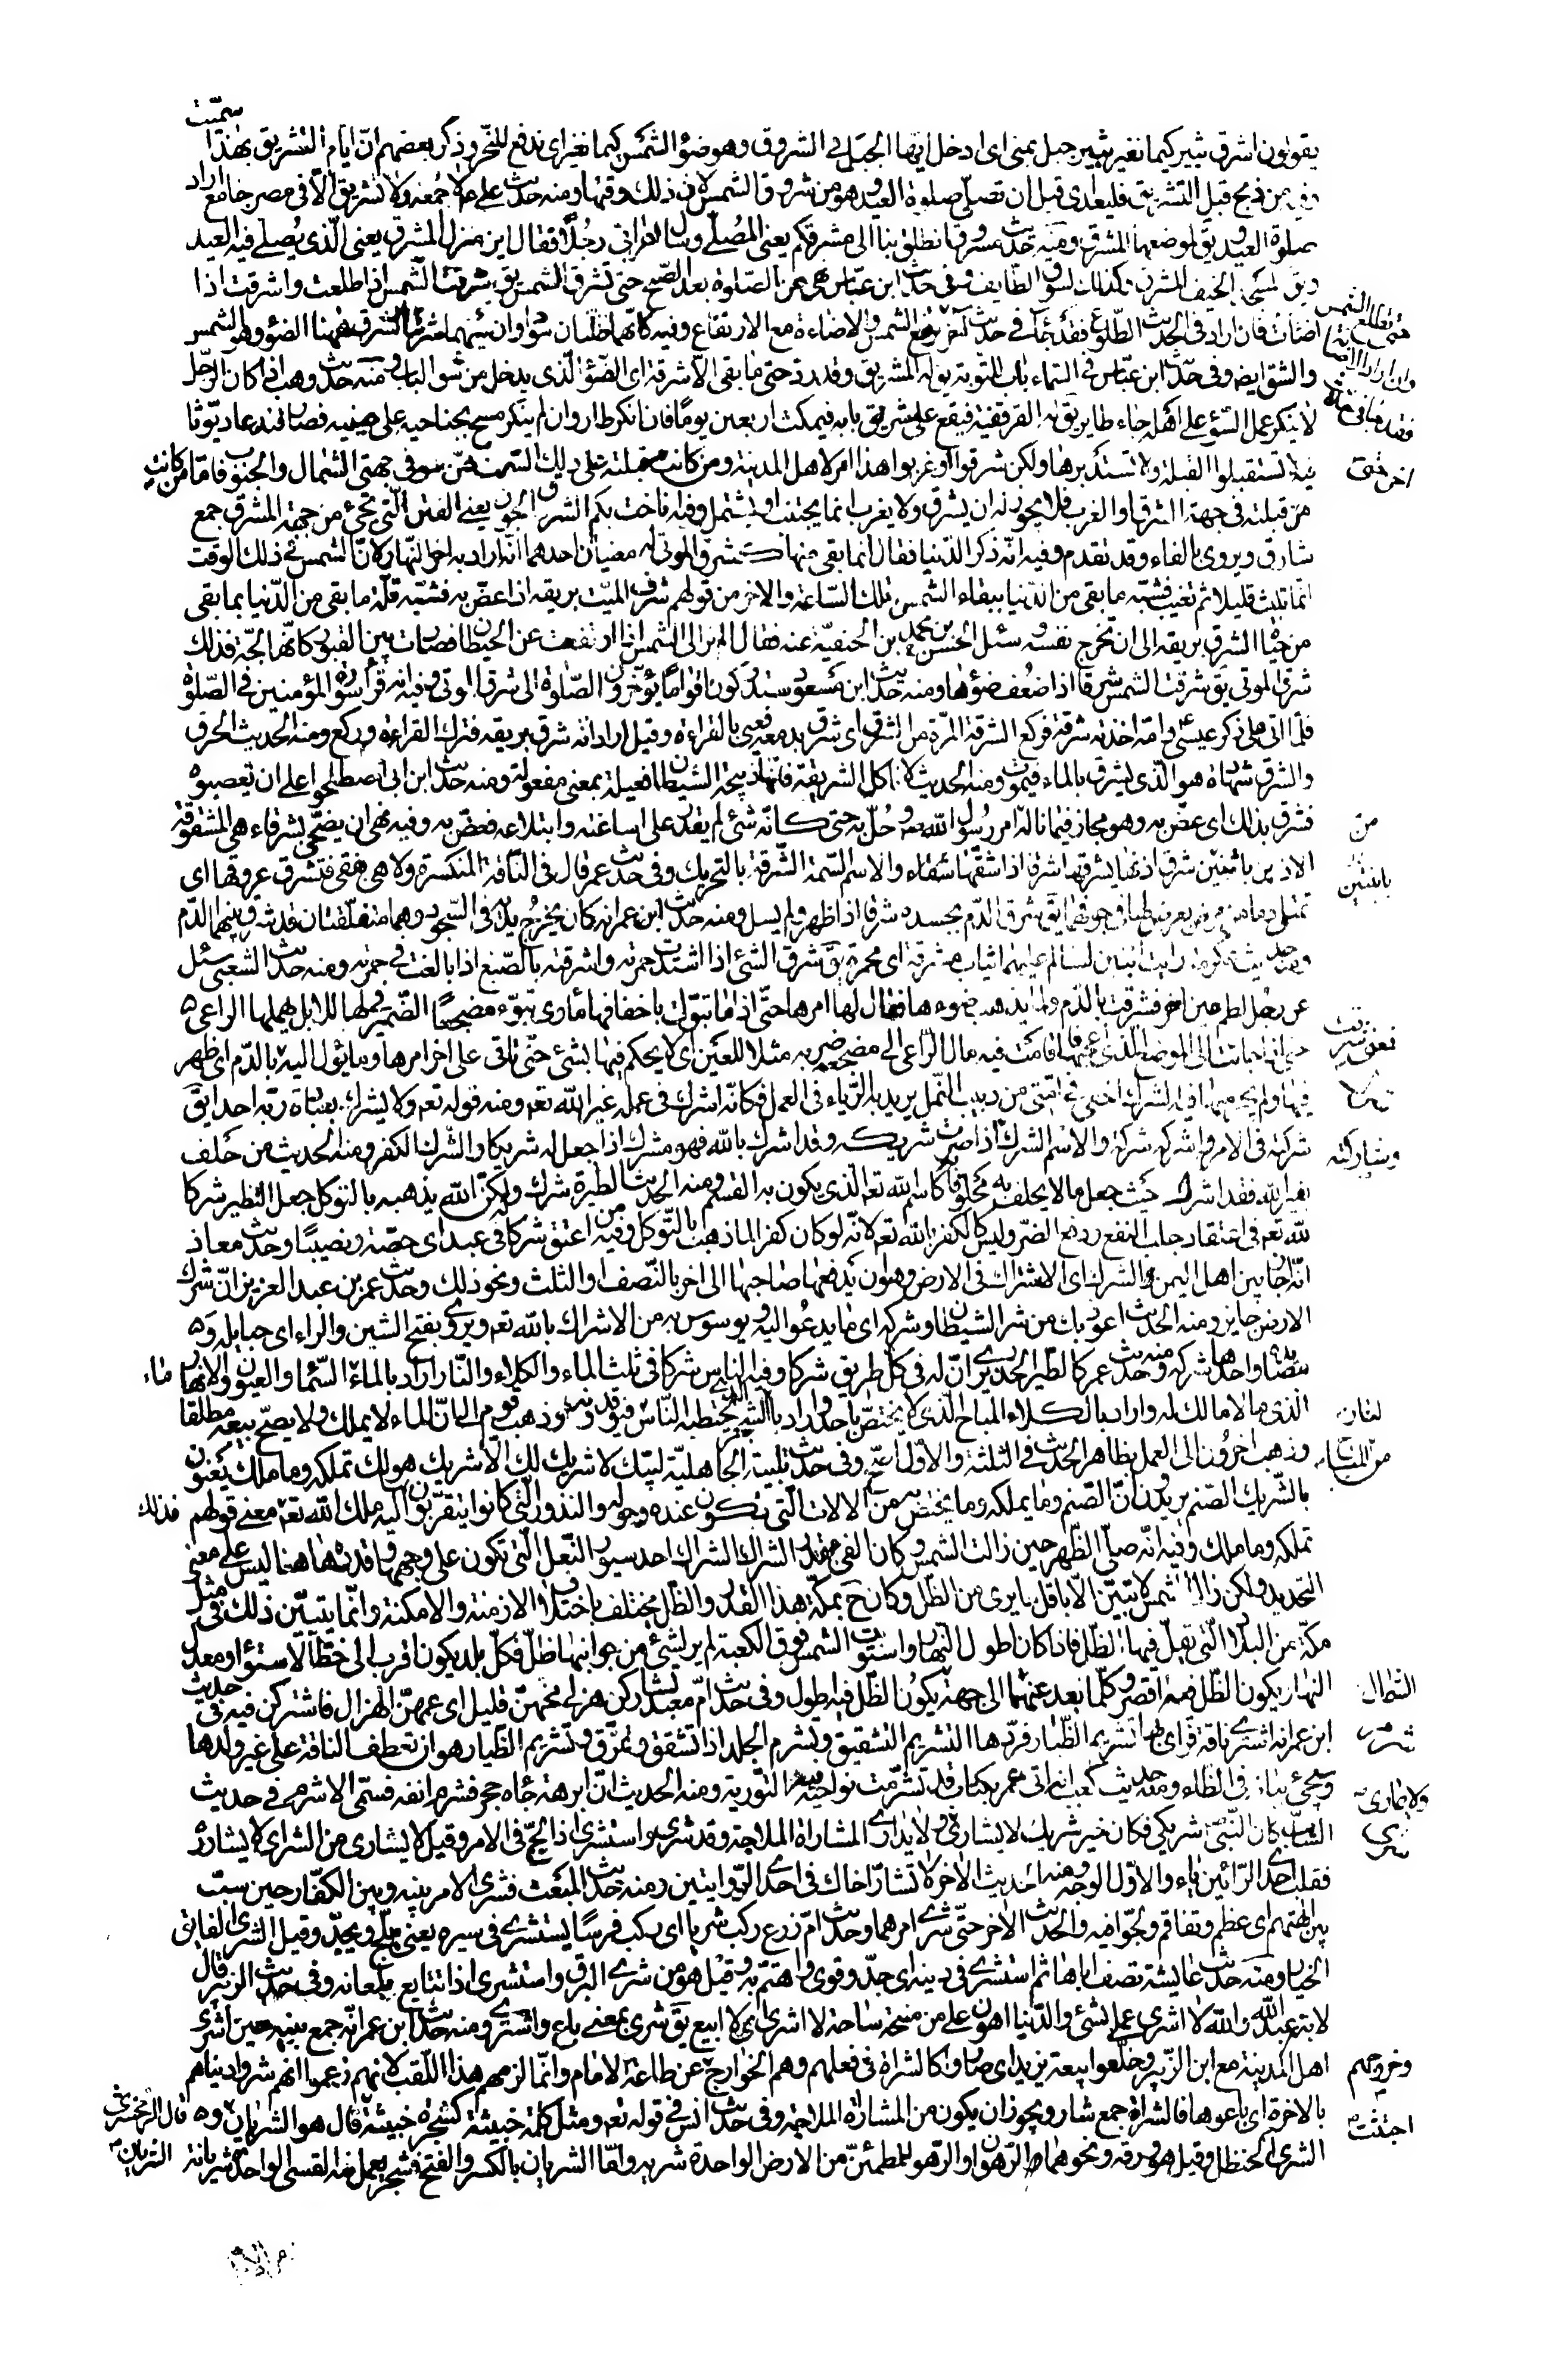 يقولون اشرق ثبير كيما نغير ثبير جبل بمنى اى ادخل ايها الجبل فى الشروق وهو ضؤ الشمس كيما نغير اى ندفع للنحر وذكر بعضهم ان ايام التشريق بهذا سميت
وفيه من ذبح قبل التشريق فليعد اى قبل ان تصلى صلوة العيد وهو من شروق الشمس لان ذلك وقتها ومنه حديث على لا جمعة ولا تشريق الا فى مصر جامع اراد
صلوة العيد ويق لموضعها المشرق ومنه حديث مسروق انطلق بنا الى مشرقكم يعنى المصلى وسال اعرابى رجلا فقال اين منزل المشرق يعنى الذى يصلى فيه العيد
ويق لمسجد الخيف المشرق وكذلك لسوق الطايف وفى حديث ابن عباس نهى عن الصلوة بعد الصبح حتى تشرق الشمس يق شرقت الشمس اذا طلعت واشرقت اذا
اضاءت فان اراد فى الحديث الطلوع فقد جاء فى حديث آخر حتى تطلع الشمس وان اراد الاضاءة فقد جاء فى حديث اخر حتى ترتفع الشمس والاضاءة مع الارتفاع وفيه كانهما ظلتان سوداوان بينهما شرق الشرق ههنا الضؤ وهو الشمس
والشق ايضا وفى حديث ابن عباس فى السماء باب للتوبة يق له المشريق وقد رد حتى ما بقى الا شرقه اى الضؤ الذى يدخل من شق الباب ومنه حديث وهب اذا كان الرجل
لا ينكر عمل السؤ على اهله جاء طاير يق له القرقفنة فيقع على مشريق بابه فيمكث اربعين يوما فان انكر طار وان لم ينكر مسح بجناحيه على عينيه فصار قنذعا ديوثا
فيه لا تستقبلوا القبلة ولا تستدبروها ولكن شرقوا او غربوا هذا امر لاهل المدينة ومن كانت قبلته على ذلك السمت ممن هو فى جهتى الشمال والجنوب فاما من كانت
من قبلته فى جهة الشرق او الغرب فلا يجوز له ان يشرق ولا يغرب انما يجتنب او يشتمل وفيه اناخت بكم الشرق الجون يعنى الفتن التى تجئ من جهة المشرق جمع
شارق ويروى بالفاء وقد تقدم وفيه انه ذكر الدنيا فقال انما بقى منها كشرق الموتى له معنيان احدهما انه اراد به اخر النهار لان الشمس فى ذلك الوقت
انما تلبث قليلا ثم تغيب فشبه ما بقى من الدنيا ببقاء الشمس تلك الساعة والاخر من قولهم شرق الميت بريقه اذا غص به فشبه قلة ما بقى من الدنيا بما بقى
من حياة الشرق بريقه الى ان تخرج نفسه وسئل الحسن بن محمد بن الحنفية عنه فقال الم تر الى الشمس اذا ارتفعت عن الحيطان فصارت بين القبور كانها لجة فذلك
شرق الموتى يق شرقت الشمس شرقا اذا ضعف ضوءها ومنه حديث ابن مسعود ستدركون اقواما يؤخرون الصلوة الى شرق الموتى وفيه انه قرأ سورة المؤمنين فى الصلوة
فلما اتى على ذكر عيسى وامه اخذته شرقة فركع الشرقة المرة من الشرق اى شرق بدمعه فعيى بالقراءة وقيل اراد انه شرق بريقه فترك القراءة وركع ومنه الحديث الحرق
والشرق شهادة هو الذى يشرق بالماء فيموت ومنه الحديث لا تاكل الشريقة فانها ذبيحة الشيطان فعيلة بمعنى مفعولة ومنه حديث ابن ابى اصطلحوا على ان يعصبوه
فشرق بذلك اى غص به وهو مجاز فيما ناله امر رسول الله وحل به حتى كانه شئ لم يقدر على اساغته وابتلاعه فغص به وفيه نهى ان يضحى بشرقاء هى المشقوقة
الاذن باثنين شرق اذنها يشرقها شرقا اذا شقها شقاء والاسم السمة الشرقة بالتحريك وفى حديث عمر قال فى الناقة المنكسرة ولا هى بفقى فتشرق عروقها اى
تمتلى دما من مرض يعرض لها فى جوفها يق شرق الدم بجسده شرقا اذا ظهر ولم يسل ومنه حديث ابن عمر انه كان يخرج يديه فى السجود وهما متفلقتان قد شرق بينهما الدم
ومنه حديث عكرمة رايت ابنين لسالم عليهما ثياب مشرقة اى محمرة يق شرق الشئ اذا اشتدت حمرته واشرقته بالصبغ اذا بالغت فى حمرته ومنه حديث الشعبى سئل
عن رجل لطم عين اخر فشرقت بالدم ولما يذهب ضوءها فقال لها امرها حتى اذا ما تبوأت باخفافها ماوى تبوء مضجعا الضمير فى لها للابل يهملها الراعى
حتى اذا جاءت الى الموضع الذى اعجبها فاقامت فيه مال الراعى الى مضجعه ضربه مثلا للعين اى لا يحكم فيها بشئ حتى تاتى على اخر امرها وما يؤل اليه بالدم اى ظهر
فيها ولم يجر منها فيه الشرك اخفى فى امتى من دبيب النمل يريد به الرياء فى العمل فكانه اشرك فى عمله غير الله تعه ومنه قوله تعه ولا يشرك بعبادة ربه احدا يق
شركته فى الامر واشركه شركة والاسم الشرك اذا صرت شريكه وقد اشرك بالله فهو مشرك اذا جعل له شريكا والشرك الكفر ومنه الحديث من حلف
بغير الله فقد اشرك حيث جعل ما لا يحلف به محلوفا كاسم الله تعه الذى يكون به القسم ومنه الحديث الطيرة شرك ولكن الله يذهبه بالتوكل جعل التطير شركا
لله تعه فى اعتقاد جلب النفع ودفع الضر وليس كالكفر بالله تعه لانه لو كان كفر الما ذهب بالتوكل وفيه من اعتق شركا فى عبد اى حصة ونصيبا وحديث معاذ
انه اجاز بين اهل اليمن الشرك اى الاشتراك فى الارض وهو ان يدفعها صاحبها الى اخر بالنصف او الثلث ونحو ذلك وحديث عمر بن عبد العزيز ان شرك
الارض جايز ومنه الحديث اعوذ بك من شر الشيطان وشركه اى ما يدعو اليه ويوسوس به من الاشراك بالله تعه ويروى بفتح الشين والراء اى حبايله و
مصائده واحدها شركه ومنه حديث عمر كالطير الحذر يرى ان له فى كل طريق شركا وفيه الناس شركا فى ثلث الماء والكلاء والنار اراد بالماء ماء السماء والعيون والانهار
الذى لا مالك له واراد بالكلاء المباح الذى لا يختص باحد واراد بالنار الشجر الذى يحتطبه الناس من المباح فيوقدونه وذهب قوم الى ان الماء لا يملك ولا يصح بيعه مطلقا
وذهب اخرون الى العمل بظاهر الحديث فى الثلثة والاول اصح وفى حديث تلبية الجاهلية لبيك لا شريك لك الا شريك هو لك تملكه وما ملك يعنون
بالشريك الصنم يريدون ان الصنم وما يملكه وما يختص به من الالات التى تكون عنده وحوله والنذور التى كانوا يتقربون بها اليه ملك الله تعه فذلك معنى قولهم
تملكه وما ملك وفيه انه صلى الظهر حين زالت الشمس وكان الفئ بقدر الشراك الشراك احد سيور النعل التى تكون على وجهها وقدره هاهنا ليس على معنى
التحديد ولكن زوال الشمس لا يتبين الا باقل ما يرى من الظل وكان ح بمكة هذا القدر والظل يختلف باختلاف الازمنة والامكنة وانما يتبين ذلك فى مثل
مكة من البلاد التى يقل فيها الظل فاذا كان اطول النهار واستوت الشمس فوق الكعبة لم ير لشئ من جوانبها ظل فكل بلد يكون اقرب الى خط الاستواء ومعدل
النهار يكون الظل فيه اقصر وكلما بعد عنهما الى جهة الشمال يكون الظل فيه اطول وفى حديث ام معبد تشاركن هزلى مخهن قليل اى عمهن الهزال فاشتركن فيه فى حديث
ابن عمر انه اشترى ناقة فراى بها تشريم الظئار فردها التشريم التشقيق وتشرم الجلد اذا تشقق وتمزق وتشريم الظيار هو ان تعطف الناقة على غير ولدها
وسيجئ بناءه فى الظاء ومنه حديث كعب انه اتى عمر بكتاب قد تشرمت نواحيه فيه التورية ومنه الحديث ان ابرهة جاه حجر فشرم انفه فسمى الاشرم فى حديث
السائب كان النبى شريكى فكان خير شريك لا يشارى ولا يمارى ولا يدارى المشاراة الملاجة وقد شرى واستشرى اذا لج فى الامر وقيل لا يشارى من الشر اى لا يشارر
فقلب احدى الرائين ياء والاول الوجه ومنه الحديث الاخر لا تشار اخاك فى احدى الروايتين ومنه حديث المبعث فشرى الامر بينه وبين الكفار حين سب
الهتهم اى عظم وتفاقم ولجوا فيه والحديث الاخر حتى شرى امرهما وحديث ام زرع ركب شريا اى ركب فرسا يستشرى فى سيره يعنى يلج ويجد وقيل الشرى الفايق
الخيار ومنه حديث عايشة تصف اباها ثم استشرى فى دينه اى جد وقوى واهتم به وقيل هو من شرى البرق واستشرى اذا تتابع لمعانه وفى حديث الزبير قال
لابنه عبد الله والله لا اشرى عملى بشئ والدنيا اهون على من منحة ساحة لا اشرى اى لا ابيع يق شرى بمعنى باع واشترى ومنه حديث ابن عمر انه جمع بنيه حين اشرى
اهل المدينة مع ابن الزبير وخلعوا بيعة يزيد اى صاروا كالشراة فى فعلهم وهم الخوارج وخروجهم عن طاعة الامام وانما لزمهم هذا اللقب لانهم زعموا انهم شروا دنياهم
بالاخرة اى باعوها فالشراة جمع شار ويجوز ان يكون من المشارة الملاجة وفى حديث انس فى قوله تعه ومثل كلمة خبيثة كشجرة خبيثة قال هو الشريان وه قال الزمخشرى
الشرى الحنظل وقيل هو ورقه ونحوهما الرهوان والرهو للمطمئن من الارض الواحدة شرية واما الشريان بالكسر والفتح فشجر يعمل منه القسى الواحدة شريانة